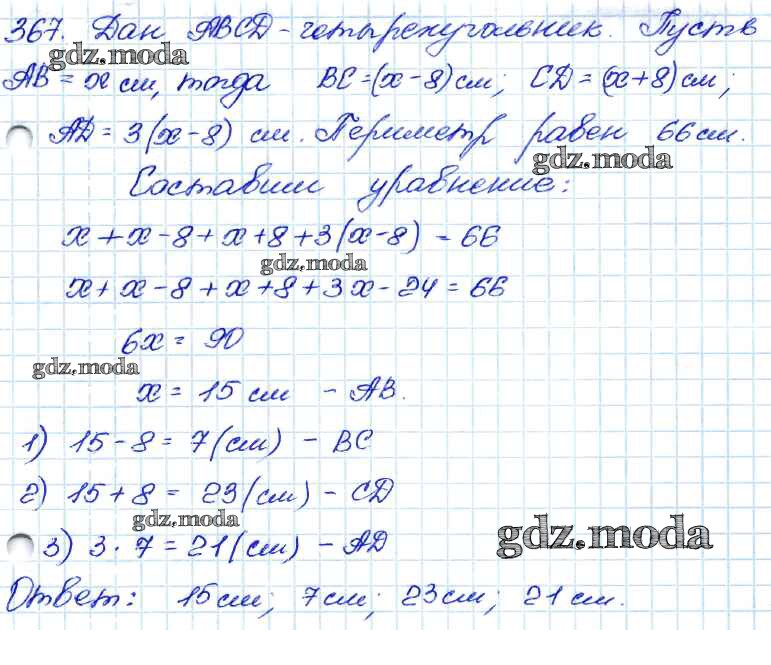 367. Дан ABCD - четырехугольник. Пусть
gdz.moda
AB = x см, тогда BC = (x - 8) см; CD = (x + 8) см;
AD = 3(x - 8) см. Периметр равен 66 см.
gdz.moda
Составим уравнение:
x + x - 8 + x + 8 + 3(x - 8) = 66
gdz.moda
x + x - 8 + x + 8 + 3x - 24 = 66
6x = 90
gdz.moda
x = 15 см - AB.
1) 15 - 8 = 7 (см) - BC
2) 15 + 8 = 23 (см) - CD
gdz.moda
gdz.moda
3) 3 · 7 = 21 (см) - AD
Ответ: 15 см; 7 см; 23 см; 21 см.